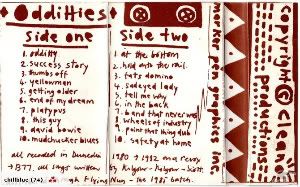 Oddities
side one
1. oddity
2. success story
3. thumbs off
4. yellowman
5. getting older
6. end of my dream
7. platypus
8. this guy
9. david bowie
10. mudchucker blues
all recorded in
1977. all songs written
side two
1. at the bottom
2. hold onto the rail
3. fats domino
4. sadeyed lady
5. tell me why
6. in the back
7. band that never was
8. wheels of industry
9. point that thing dub
10. safety at home
1980 → 1982 on a revox
by Kilgour - Kilgour - Scott.
Flying Nun - the 1985 batch.
marker pen graphics inc.
copyright © cleano
productions
chillblue (74)